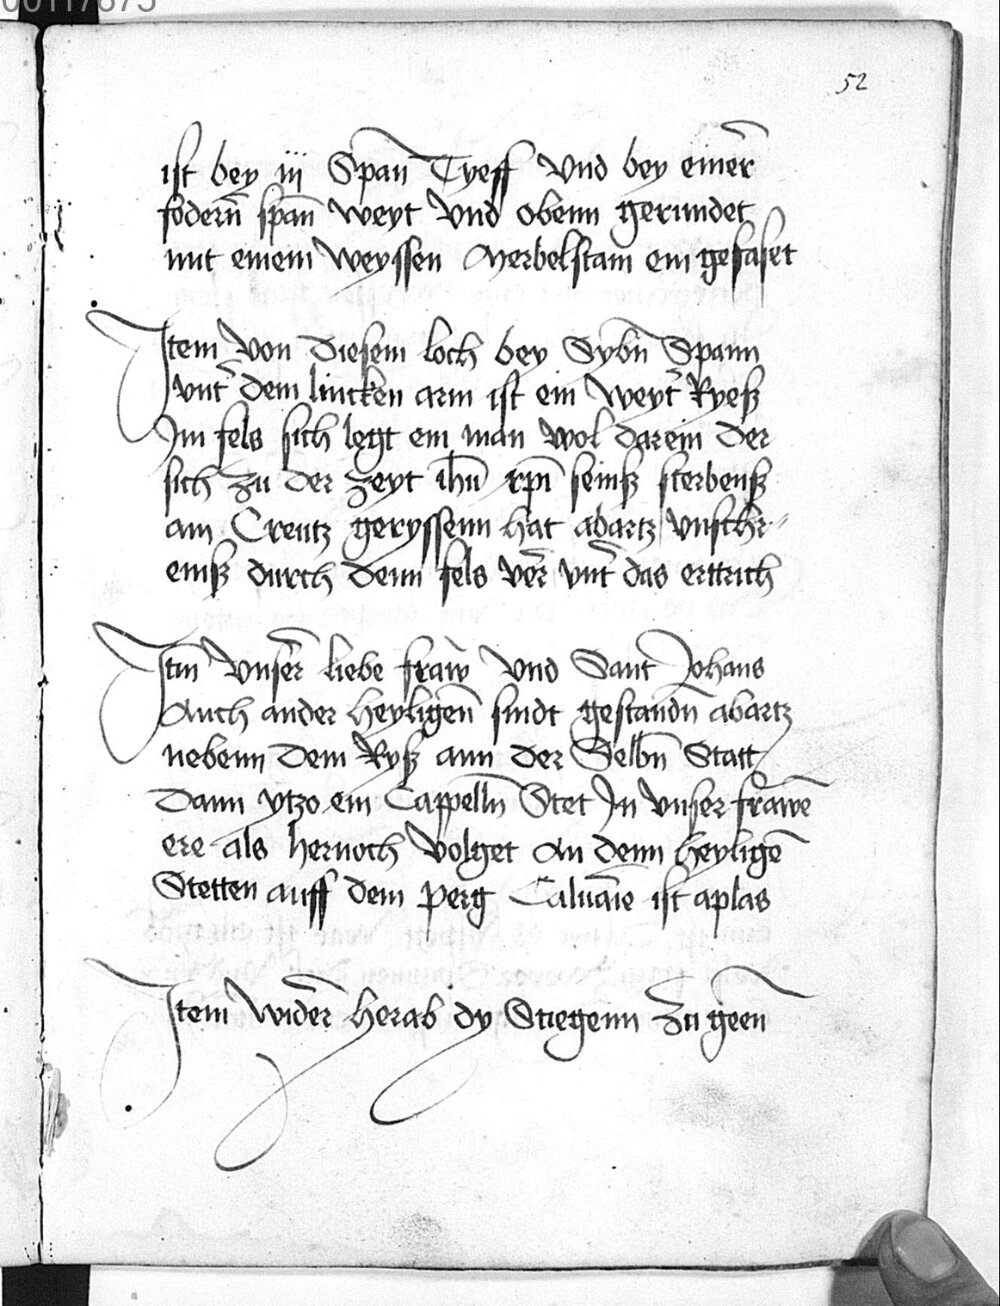 52
ist bey iij Span Tyeff Vnd bey einer̄
fodern̄ span̄ weyt Vnd obenn gerundet
mit einem Weyssen Merbelstain ein gefaset
Item Von diesem loch bey Sybn̄ Spann
vnt̄ dem lincken arm ist ein Weyt̄ Ryeß
Im fels sich legt ein man wol darein der
sich zu der Zeyt ih̄u xp̄i seinß sterbenß
am Creutz geryssenn hat abartz vnschr̄
einß durch denn fels ver̄ vnt̄ das erttrich
Itm̄ Vnser̄ liebe fraw Vnd Sant Johans
Auch ander heyligen̄ sindt gestandn̄ abartz
nebenn dem Ryß ann der Selbn̄ Statt
Dann ytzo ein Cappelln̄ Stet In vnser frawe̅
ere als hernoch Volget An denn heylige̅
Stetten auff dem perg Caluarie ist aplas
Item Wider̄ herab dy Stiegenn Zu geen̄